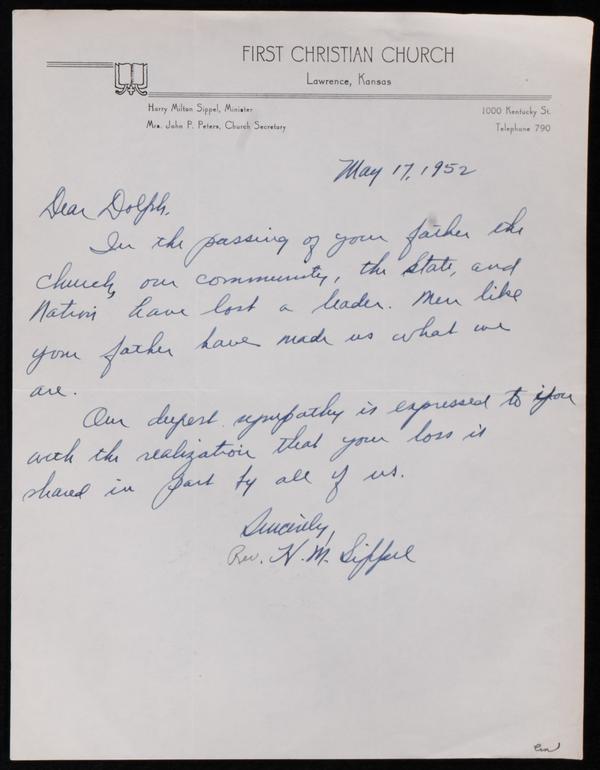 FIRST CHRISTIAN CHURCH
Lawrence, Kansas
Harry Milton Sippel, Minister
Mrs. John P. Peters, Church Secretary
1000 Kentucky St.
Telephone 790
May 17, 1952
Dear Dolph.
In the passing of your father the
church, our community, the State, and
Nation have lost a leader. Men like
your father have made us what we
are.
Our deepest sympathy is expressed to you
with the realization that your loss is
shared in part by all of us.
Sincerely,
Rev. H. M. Sippel